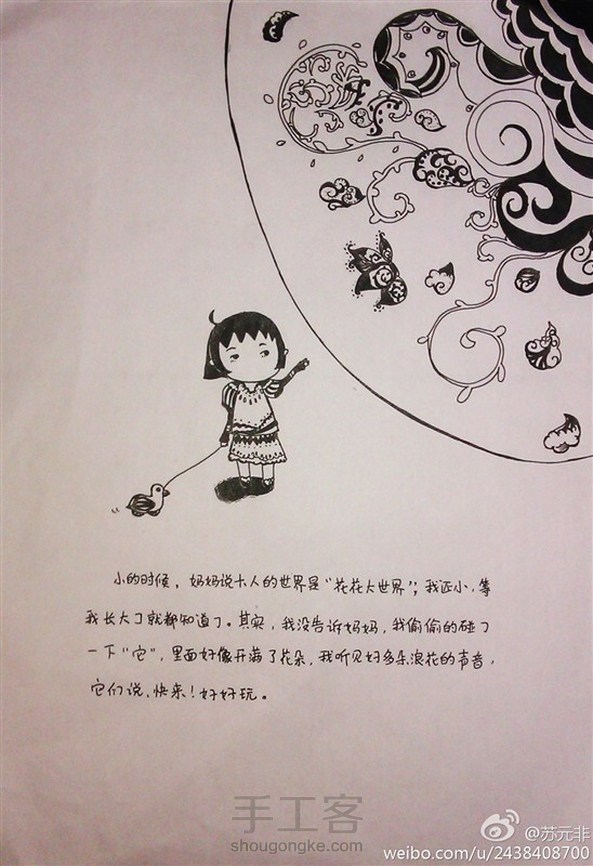 小的时候，妈妈说大人的世界是“花花大世界”；我还小，等
我长大了就都知道了。其实，我没告诉妈妈，我偷偷的碰了
一下“它”，里面好像开满了花朵，我听见好多朵浪花的声音，
它们说，快来！好好玩。
手工客
shougongke.com
@苏元非
weibo.com/u/2438408700